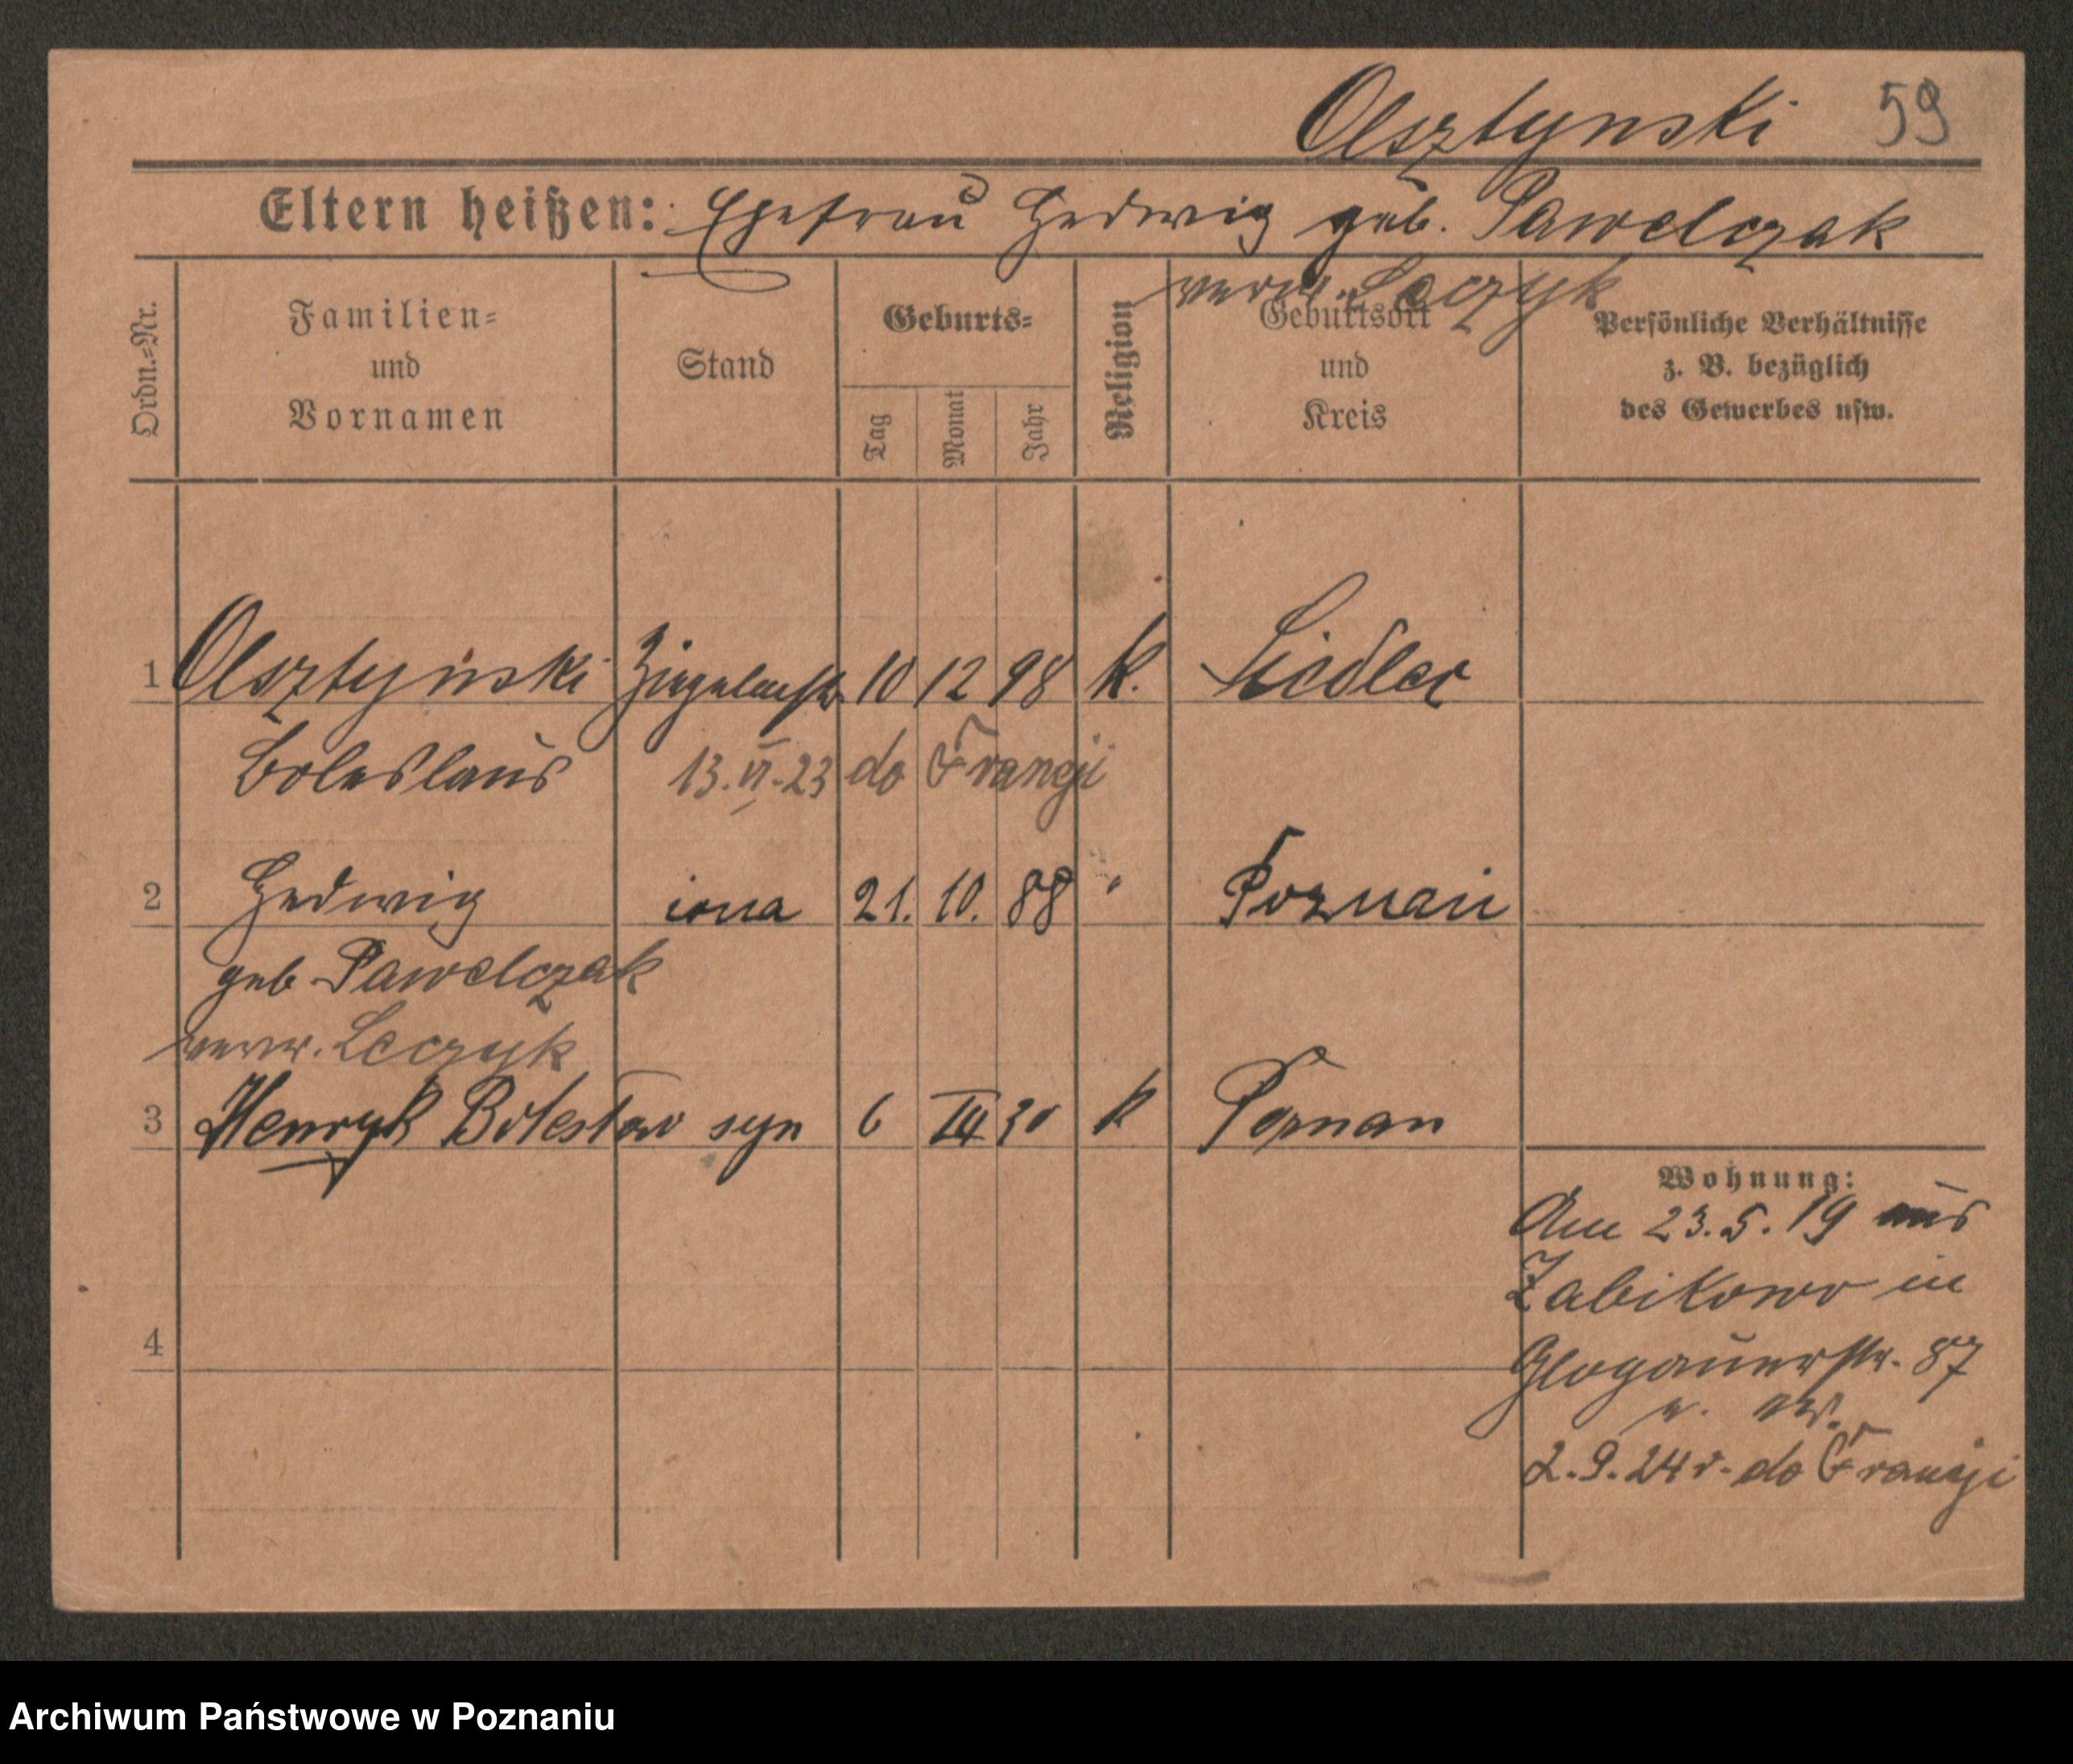 Olsztynski 59
Eltern heißen: Ehefrau Hedwig geb. Pawelczak
verw. Leczyk
Ordn.=Nr.
Familien=
und
Vornamen
Stand
Geburts=
Tag
Monat
Jahr
Religion
Geburtsort
und
Kreis
Persönliche Verhältnisse
z. B. bezüglich
des Gewerbes usw.
1 Olsztyński 10 12 98 k. Siedlec
Boleslaus 13.VI.23 do Francji
2 Hedwig żona 21. 10. 88 " Poznań
geb Pawelczak
verw. Leczyk
3 Henryk Bolesław syn 6 k Poznan
Wohnung:
Am 23.5.19 aus
Żabikowo in
Glogauerstr. 87
2.9.24 r. do Francji
4
Archiwum Państwowe w Poznaniu